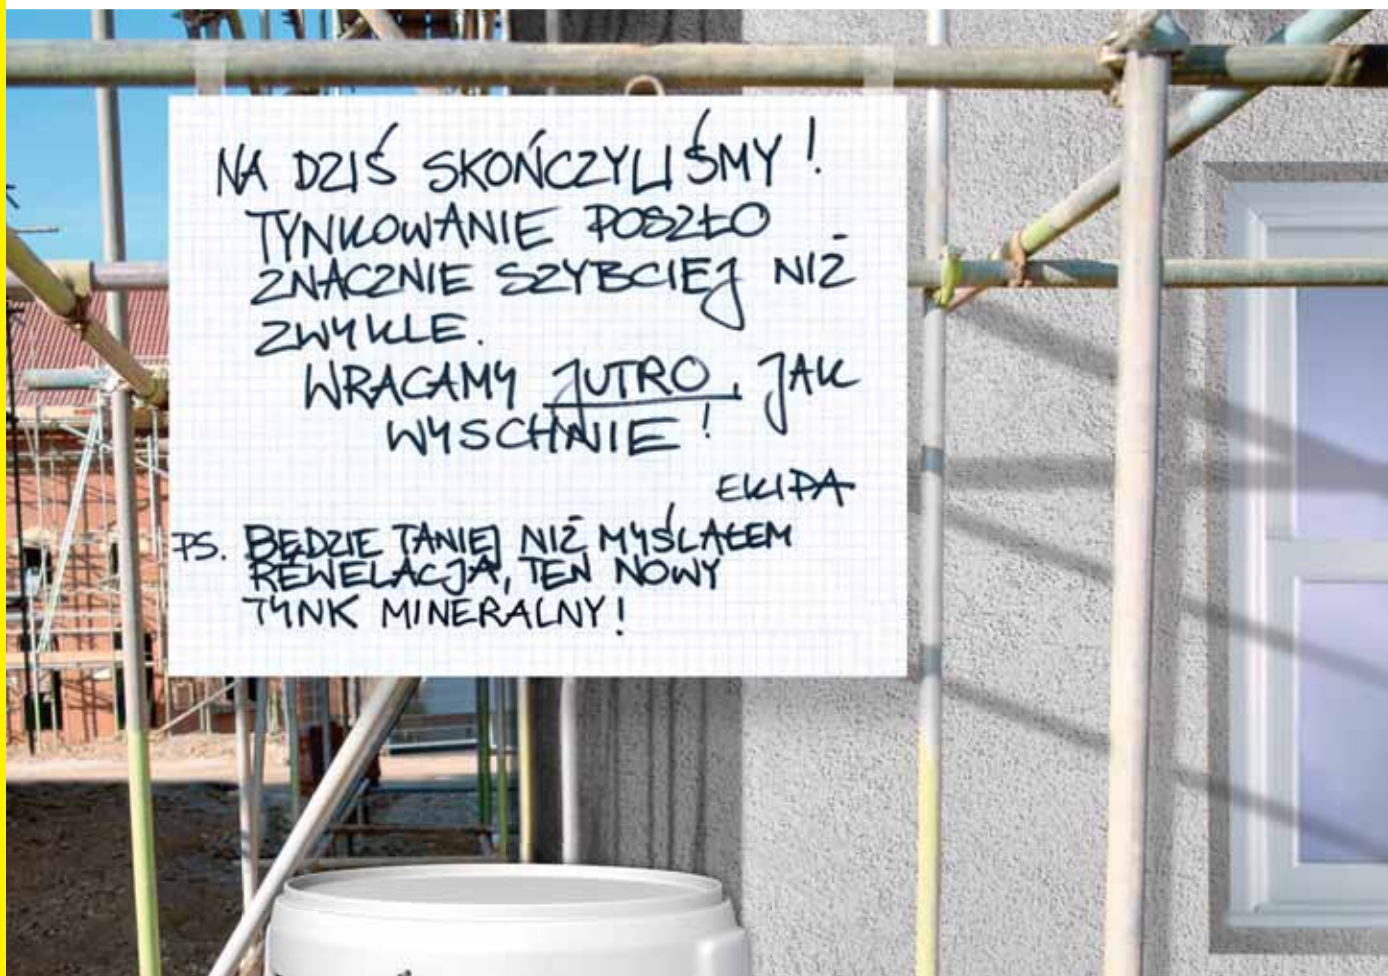 NA DZIŚ SKOŃCZYLIŚMY!
TYNKOWANIE POSZŁO
ZNACZNIE SZYBCIEJ NIŻ
ZWYKLE.
WRACAMY JUTRO, JAK
WYSCHNIE!
EKIPA
PS. BĘDZIE TANIEJ NIŻ MYŚLAŁEM
REWELACJA, TEN NOWY
TYNK MINERALNY!